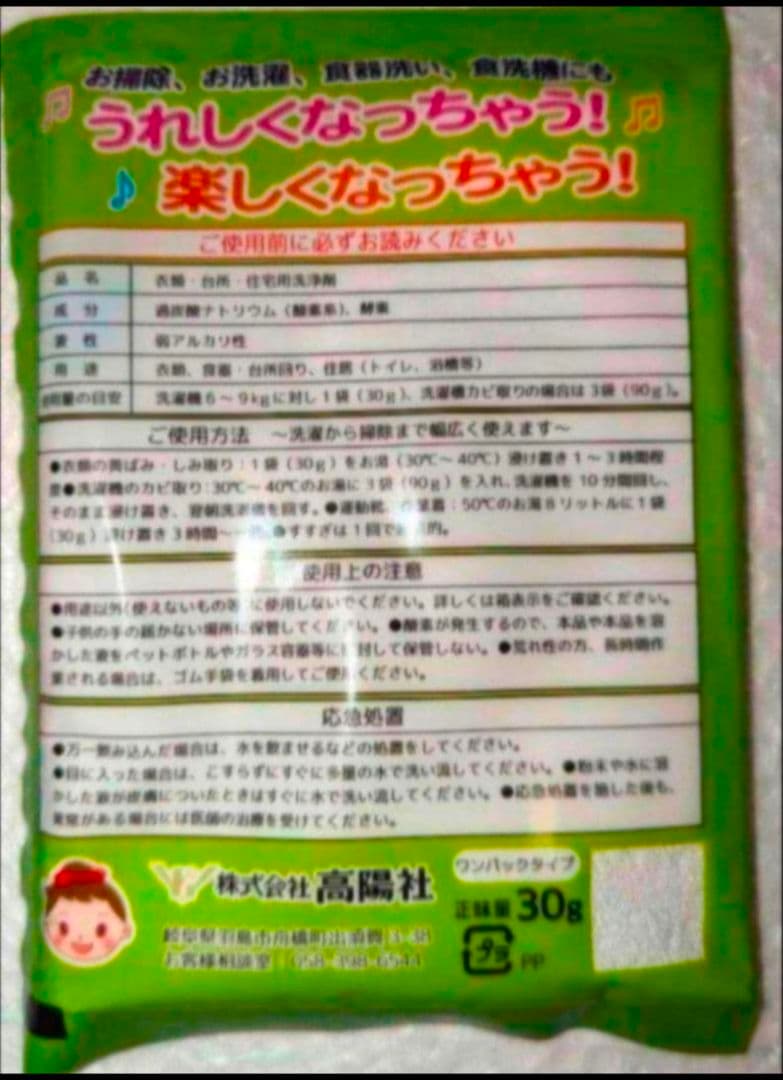 お掃除、お洗濯、食器洗い、食洗機にも
うれしくなっちゃう!
楽しくなっちゃう!
ご使用前に必ずお読みください
品 名 衣類・台所・住宅用洗浄剤
成 分 過炭酸ナトリウム(酸素系)、酵素
液 性 弱アルカリ性
用 途 衣類、食器・台所回り、住居(トイレ、浴槽等)
使用量の目安 洗濯機6~9kgに対し1袋(30g)、洗濯槽カビ取りの場合は3袋(90g)。
ご使用方法 ~洗濯から掃除まで幅広く使えます~
●衣類の黄ばみ・しみ取り:1袋(30g)をお湯(30℃~40℃)浸け置き1~3時間程
度●洗濯機のカビ取り:30℃~40℃のお湯に3袋(90g)を入れ、洗濯機を10分間回し、
そのまま浸け置き、翌朝洗濯機を回す。●運動靴、作業着:50℃のお湯8リットルに1袋
(30g)浸け置き3時間~ ●すすぎは1回で 的。
使用上の注意
●用途以外(使えないもの等)に使用しないでください。詳しくは箱表示をご確認ください。
●子供の手の届かない場所に保管してください。●酸素が発生するので、本品や本品を溶
かした液をペットボトルやガラス容器等に 封して保管しない。●荒れ性の方、長時間作
業される場合は、ゴム手袋を着用してご使用ください。
応急処置
●万一飲み込んだ場合は、水を飲ませるなどの処置をしてください。
●目に入った場合は、こすらずにすぐに多量の水で洗い流してください。●粉末や水に溶
かした液が皮膚についたときはすぐに水で洗い流してください。●応急処置を施した後も、
異常がある場合には医師の治療を受けてください。
株式会社 高陽社
岐阜県羽島市舟橋町出須賀3-38
お客様相談室 058-398-6544
ワンパックタイプ
正味量 30g
プラ PP